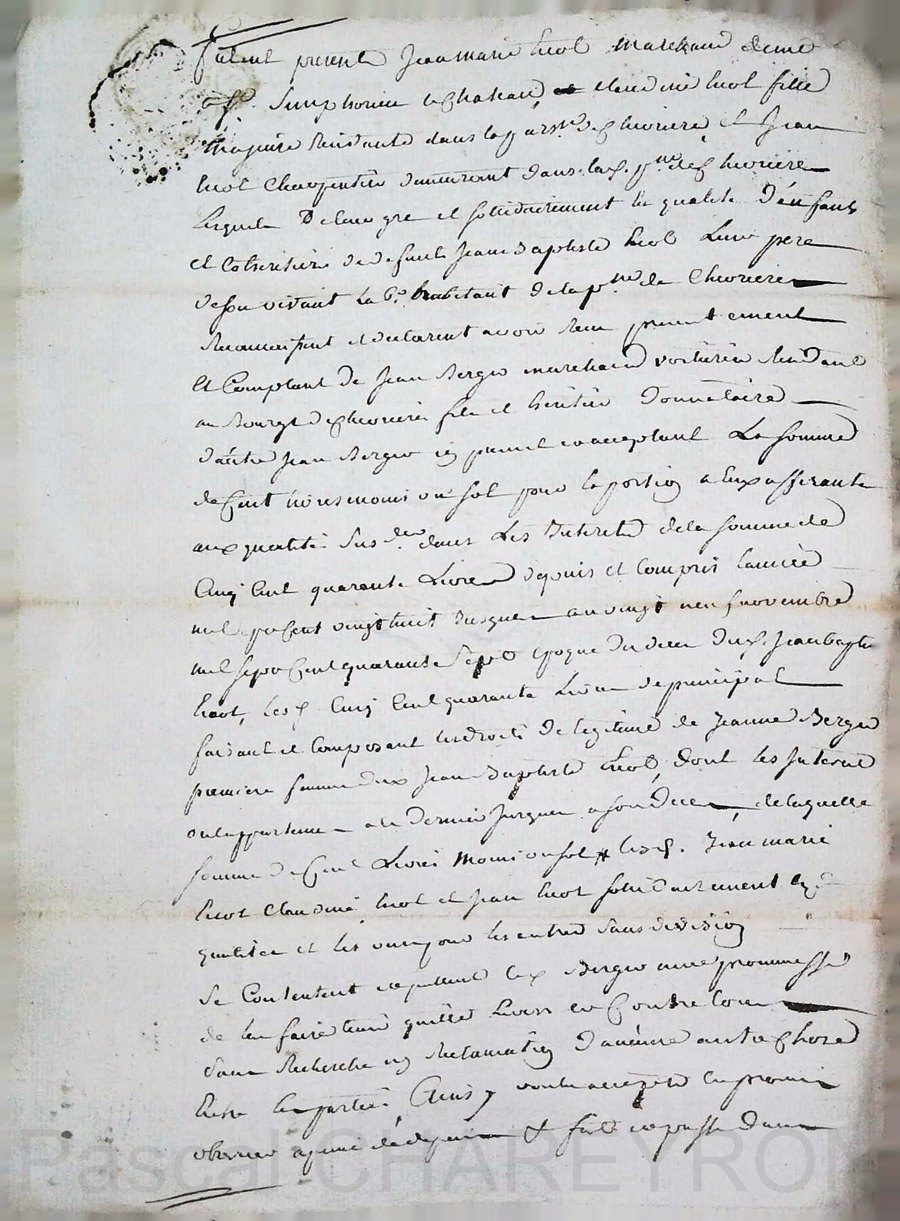 furent presents Jean marie huot marchand deme
St. Simphorien le chateau, claudine huot fille
majeure Residante dans la parsse de chevriere et Jean
huot charpentier demeurant dans lad. psse de chevriere
lesquels De leur gre et sollidairement En qualité D'enfants
et Cohéritiers de defunt Jean Baptiste huot Leur pere
de son vivant habitant de la psse de chevrieres
Reconnoissent et declarent avoir Reçu presentement
et Comptant de Jean Berger marchand voiturier Residant
au Bourg de chevriere fils et héritier Donnataire
d'autre Jean Berger icy present et acceptant La somme
de Cent livres moins un sol pour la portion a Eux afferante
aux qualités Susdes dans Les Interets de la somme de
Cinq Cent quarante Livres depuis et Compris l'année
mil sept Cent vingt huit Jusques au vingt neuf novembre
mil sept Cent quarante Sept Epoque du deces dud. Jean bapte
huot, lesd. Cinq Cent quarante Livres de principal
faisant et Composant les droits de legitime de Jeanne Berger
premiere femme dud Jean Baptiste huot, dont les Interets
ont appartenu a ce dernier Jusques a son deces, de laquelle
somme de Cent Livres moins un sol lesd. Jean marie
huot Claudine huot et Jean huot sollidairement
qualités et les uns pour les autres sans division
se Contentent et quittent led Berger avec promesse
de l'en faire tenir quitte Envers et Contre tous
d'une Recherche ny Reclamation D'aucune autre Chose
Entre les parties Ainsy voulu accepté Et promis
observer a peine de depens & fait et passé dans
Pascal CHAREYRON